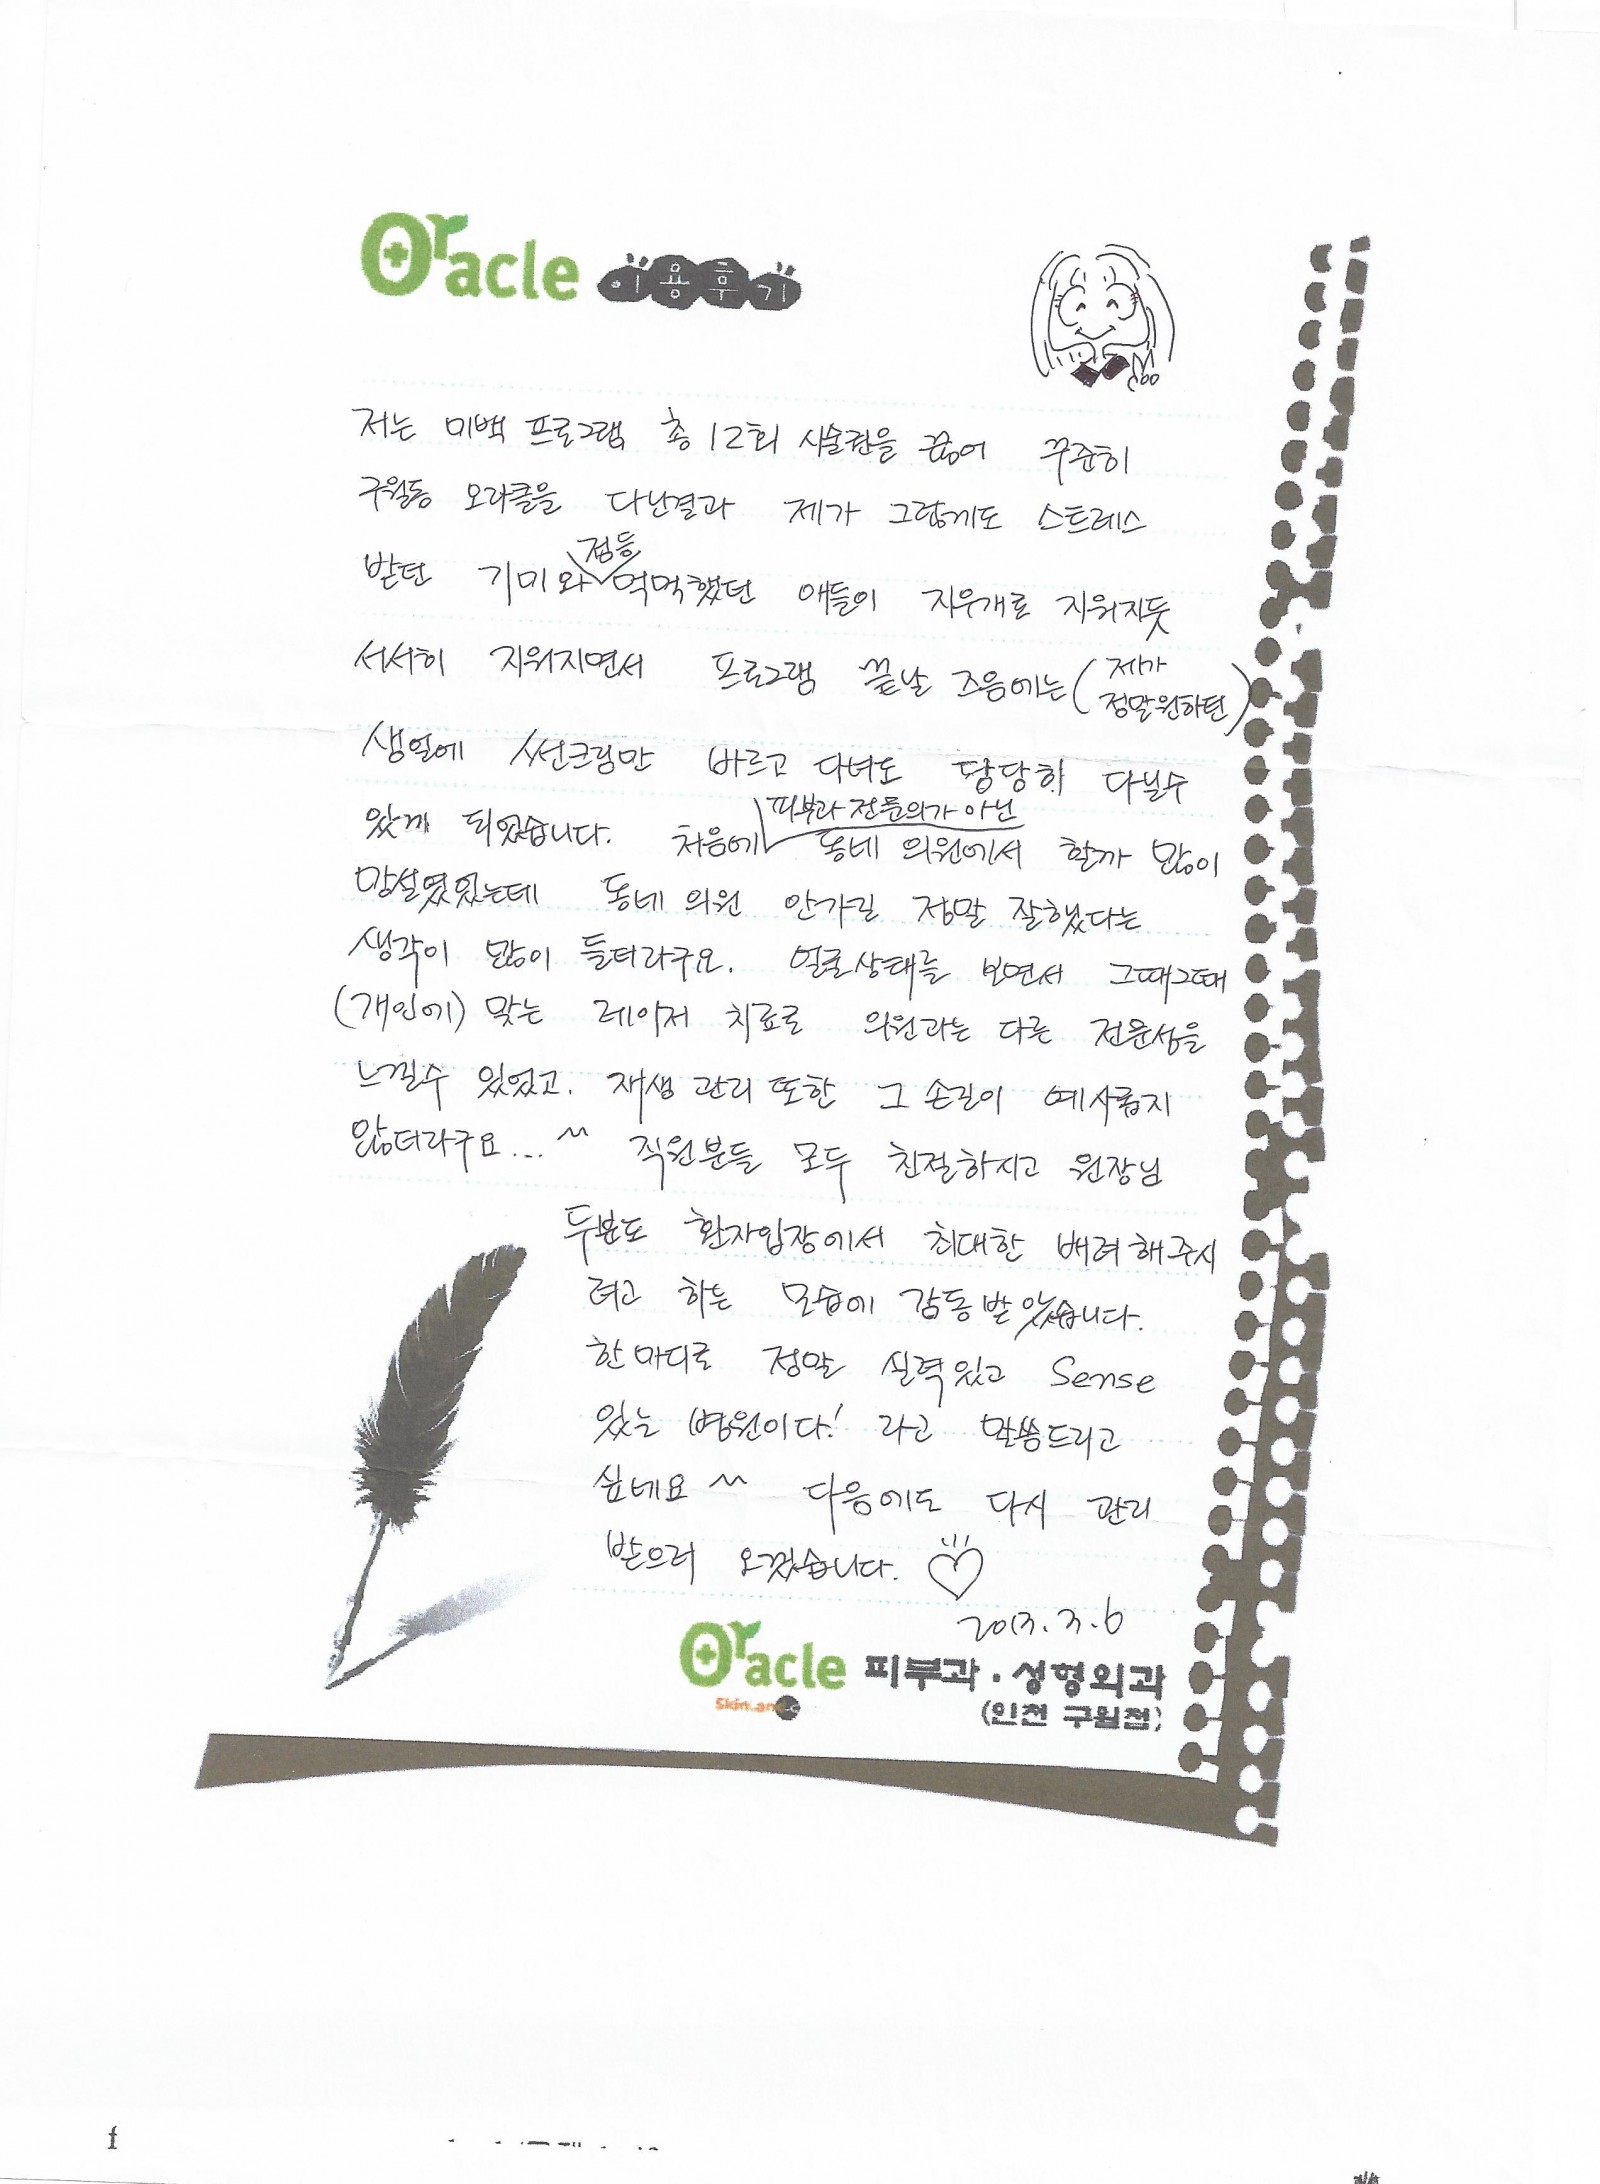 Oracle 이용후기
저는 미백 프로그램 총 12회 시술권을 끊어 꾸준히
구월동 오라클을 다닌결과 제가 그렇게도 스트레스
받던 기미와 점등 먹먹했던 애들이 지우개로 지워지듯
서서히 지워지면서 프로그램 끝날 즈음에는 (제가 정말원하던)
생얼에 썬크림만 바르고 다녀도 당당히 다닐수
있게 되었습니다. 처음에 피부과 전문의가 아닌 동네 의원에서 할까 많이
망설였었는데 동네 의원 안가길 정말 잘했다는
생각이 많이 들더라구요. 얼굴상태를 보면서 그때그때
(개인에) 맞는 레이저 치료로 의원과는 다른 전문성을
느낄수 있었고. 재생 관리 또한 그 손길이 예사롭지
않더라구요... ^^ 직원분들 모두 친절하시고 원장님
두분도 환자입장에서 최대한 배려해주시
려고 하는 모습에 감동받았습니다.
한마디로 정말 실력있고 Sense
있는 병원이다! 라고 말씀드리고
싶네요 ^^ 다음에도 다시 관리
받으러 오겠습니다.
2013.3.6
Oracle 피부과 · 성형외과
(인천 구월점)
f